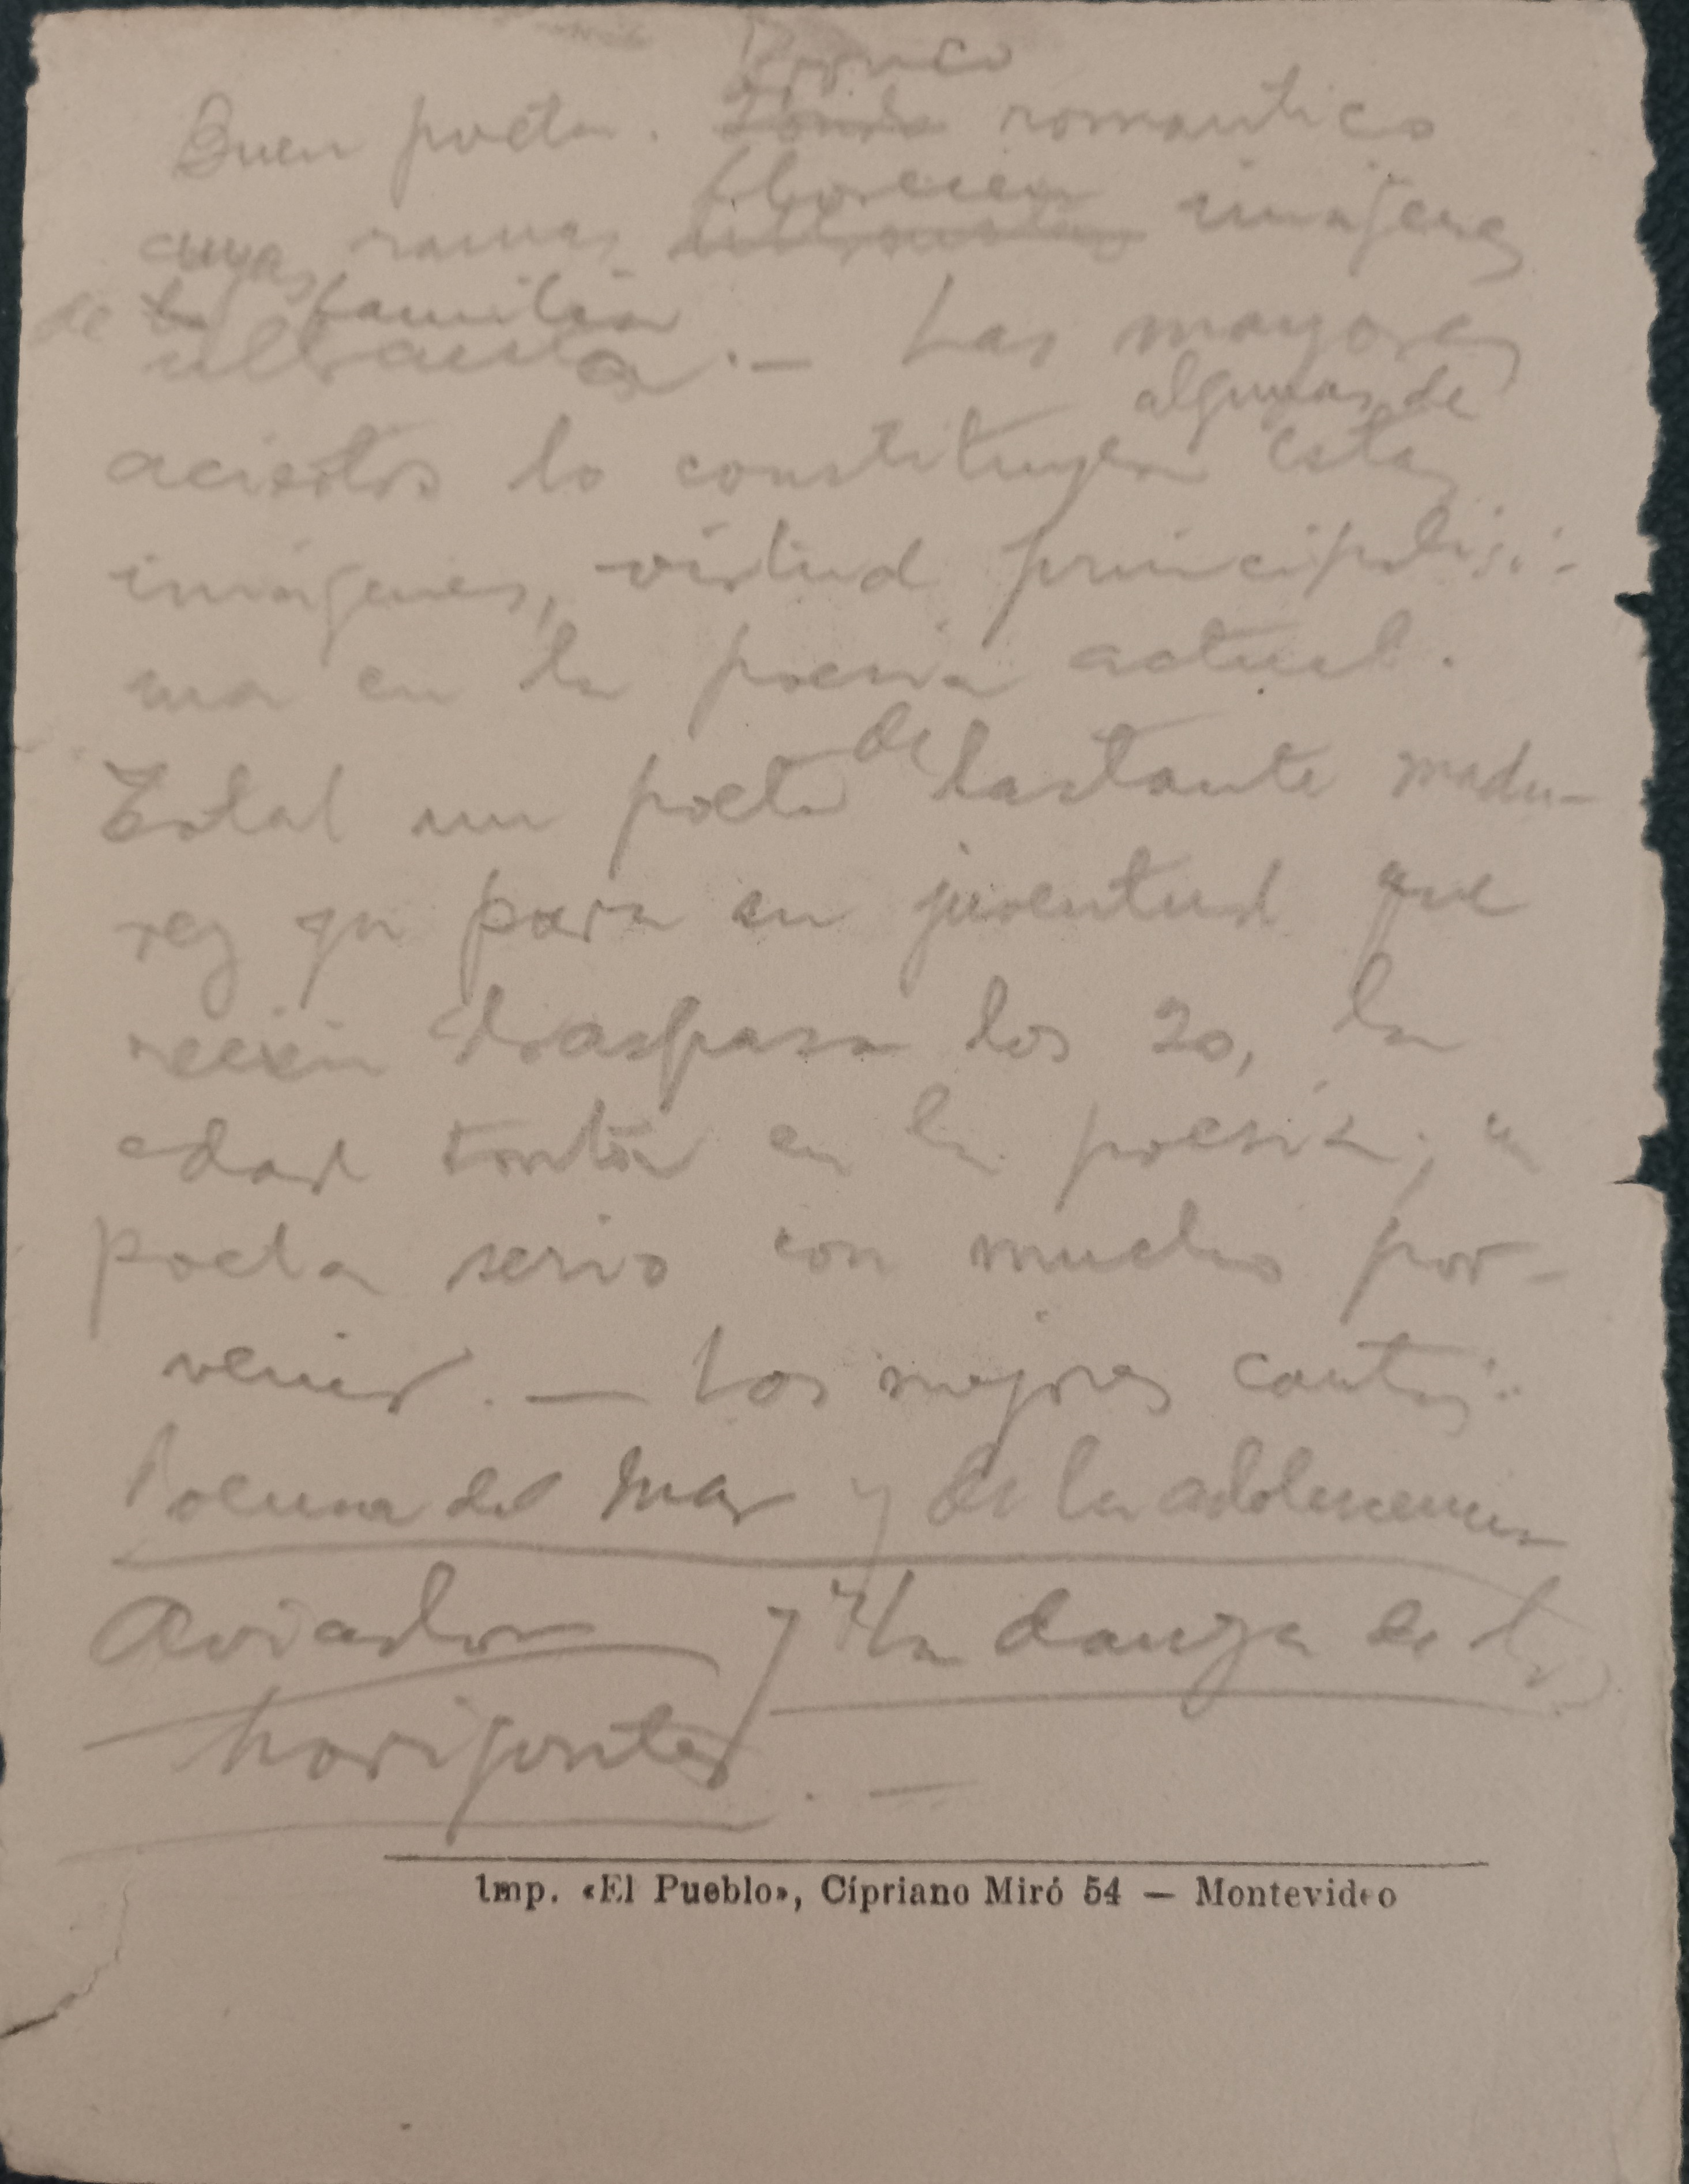 Tronco
Buen poeta. Fondo romantico
florecen
cuyas ramas ultraistas imágenes
de la familia
ultraista. — Las mayores
algunas de
aciertos lo constituyen estas
imágenes, virtud principalisi-
ma en la poesia actual.
de
Total un poeta bastante madu-
rez qu para su juventud que
recien traspasa los 20, la
edad tonta en la poesía; un
poeta serio con mucho por-
venir. — Los mejores cantos:
Poema del mar y de la adolescencia
Aviador y "La danza de los
horizontes". —
Imp. «El Pueblo», Cipriano Miró 54 — Montevideo